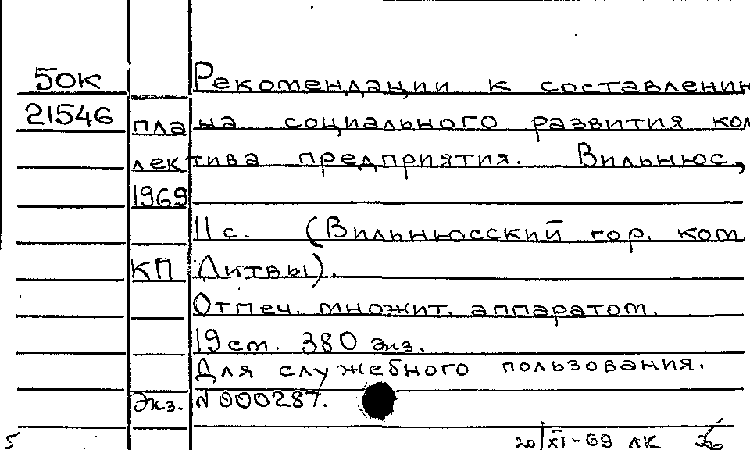 50к Рекомендации к составлению
21546 пла на социального развития кол
лек тива предприятия. Вильнюс,
1969
11с. (Вильнюсский гор. ком
КП Литвы).
Отпеч. множит. аппаратом.
19см. 380 экз.
Для служебного пользования.
Экз. N000287.
5 20/XI-69 ЛК